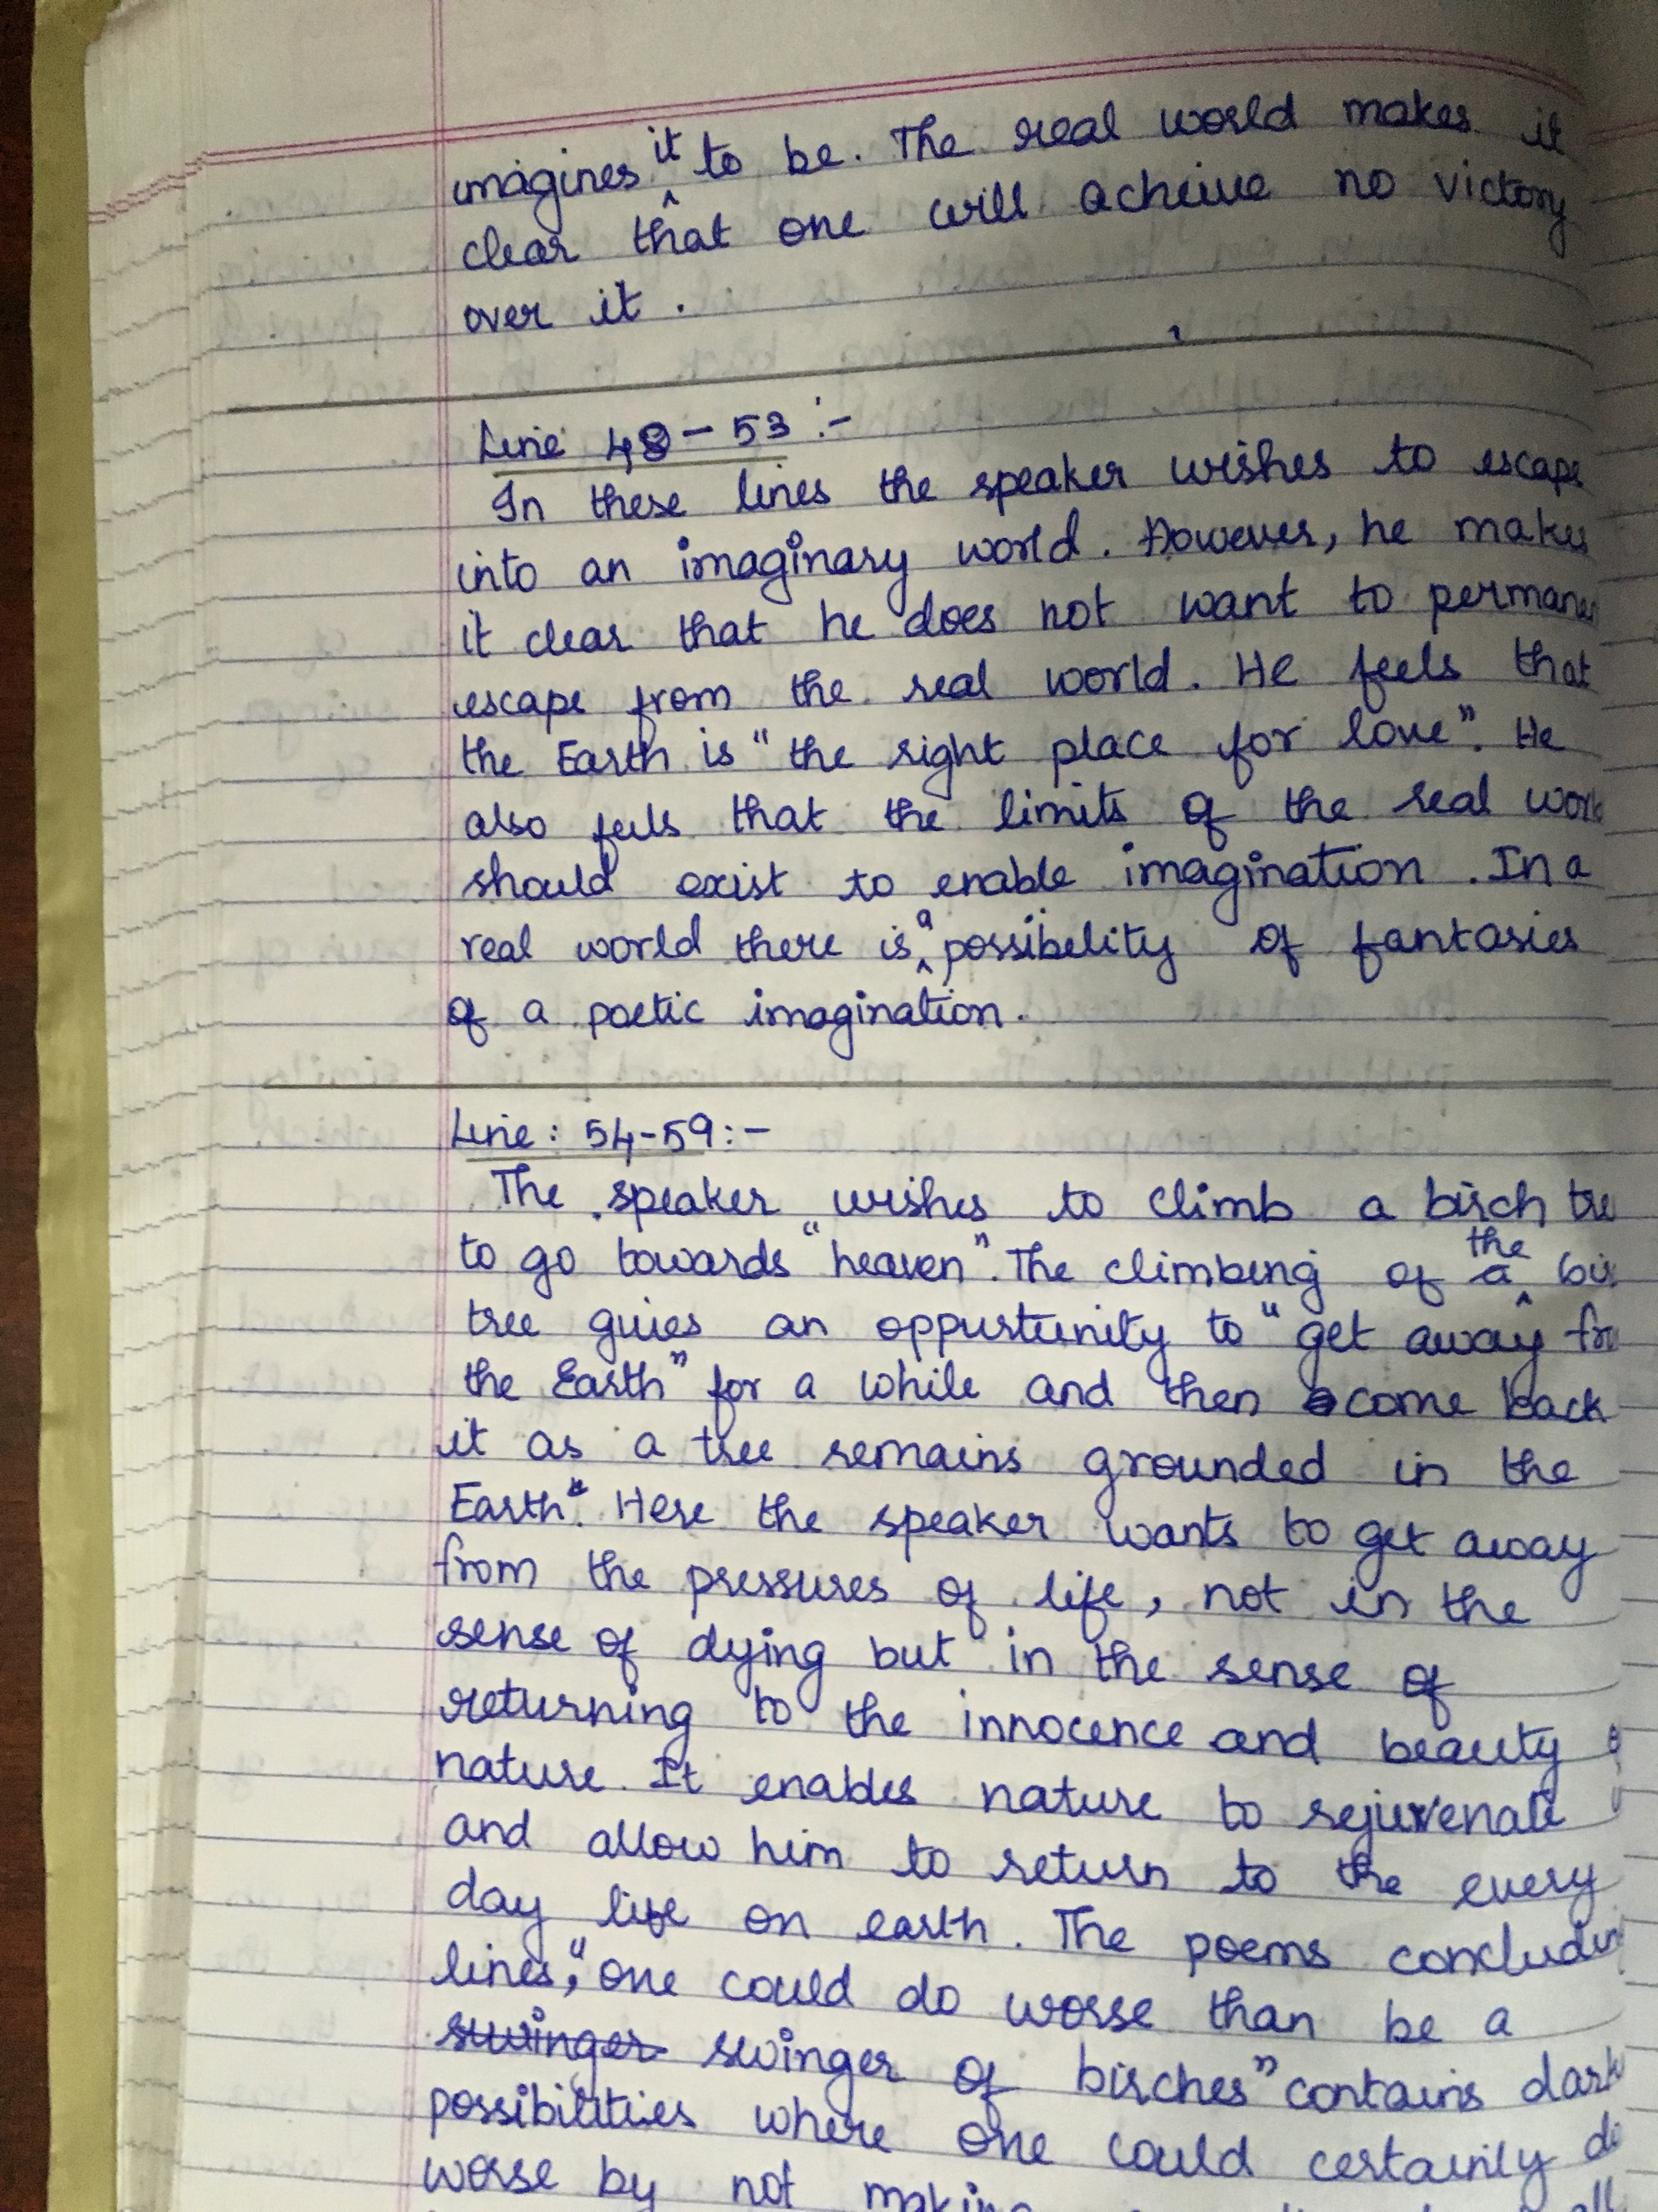 imagines it to be. The real world makes it
clear that one will acheive no victory
over it.
Line 48-53:-
In these lines the speaker wishes to escape
into an imaginary world. However, he makes
it clear that he does not want to
escape from the real world. He feels that
the Earth is "the right place for love". He
also feels that the limits of the real
should exist to enable imagination. In a
real world there is a possibelity of fantasies
of a poetic imagination.
Line: 54-59:-
The speaker wishes to climb a birch
to go towards "heaven". The climbing of a the
tree gives an oppurtunity to "get away
the Earth" for a while and then come back
it as a tree remains grounded in the
Earth. Here the speaker wants to get away
from the pressures of life, not in the
sense of dying but in the sense of
returning to the innocence and beauty
nature. It enables nature to rejuvenate
and allow him to return to the every
day life on earth. The poems
lines, "one could do worse than be a
swinger swinger of birches" contains
possibilities where one could certainly
worse by not